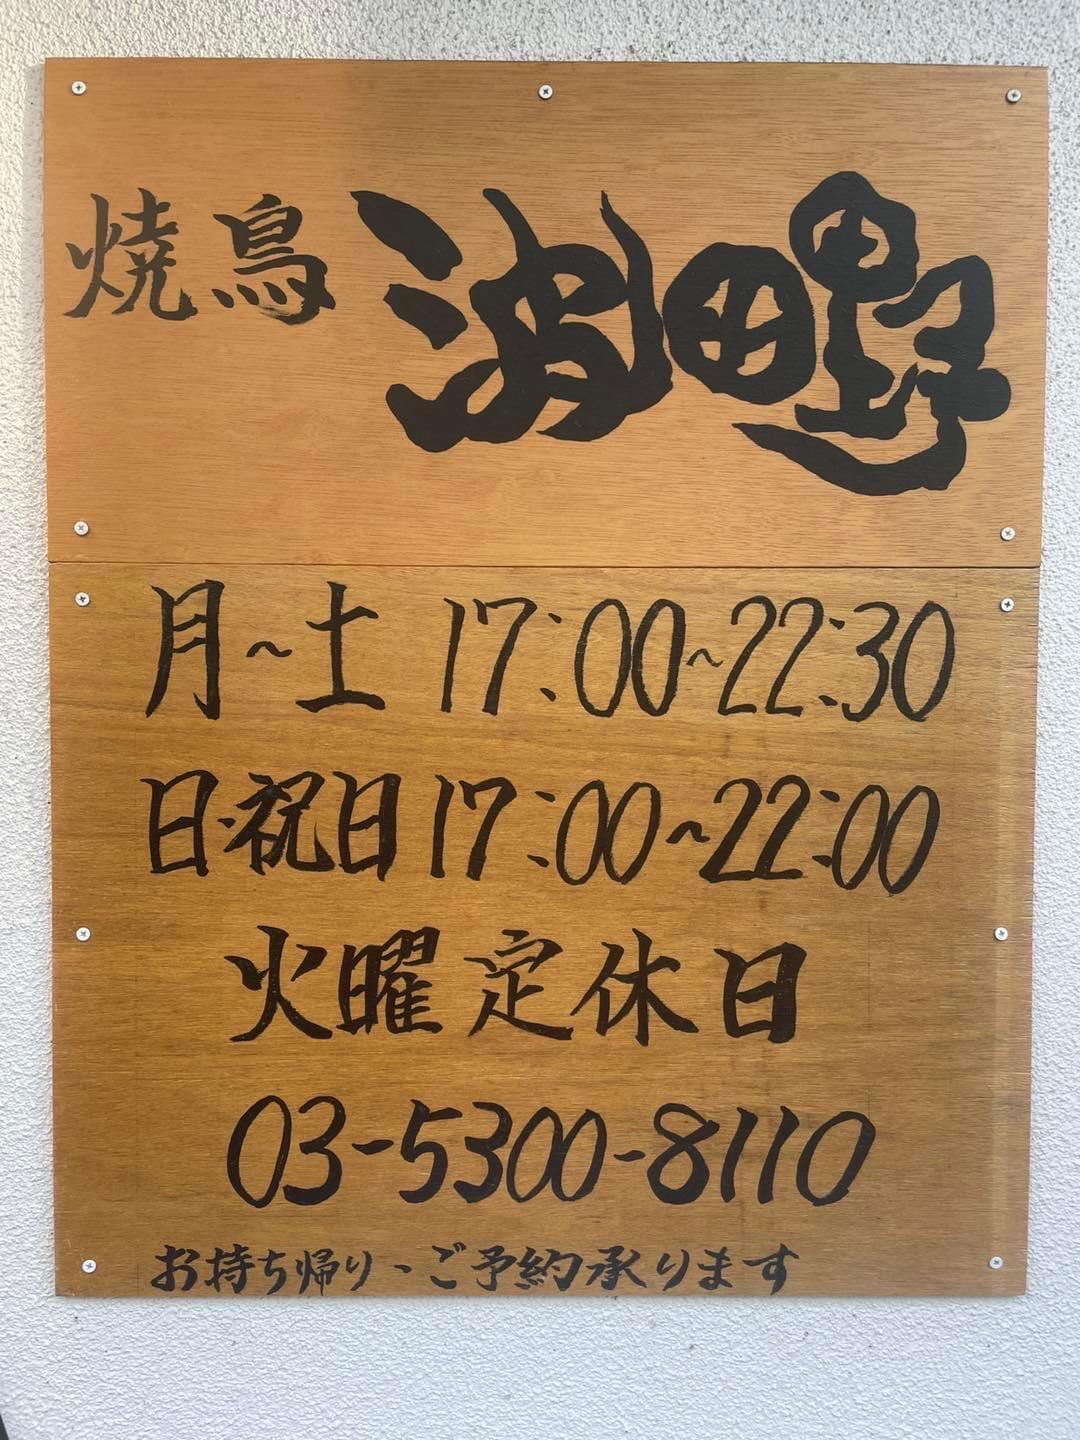 焼鳥 波田野
月~土 17:00~22:30
日・祝日 17:00~22:00
火曜定休日
03-5300-8110
お持ち帰り・ご予約承ります